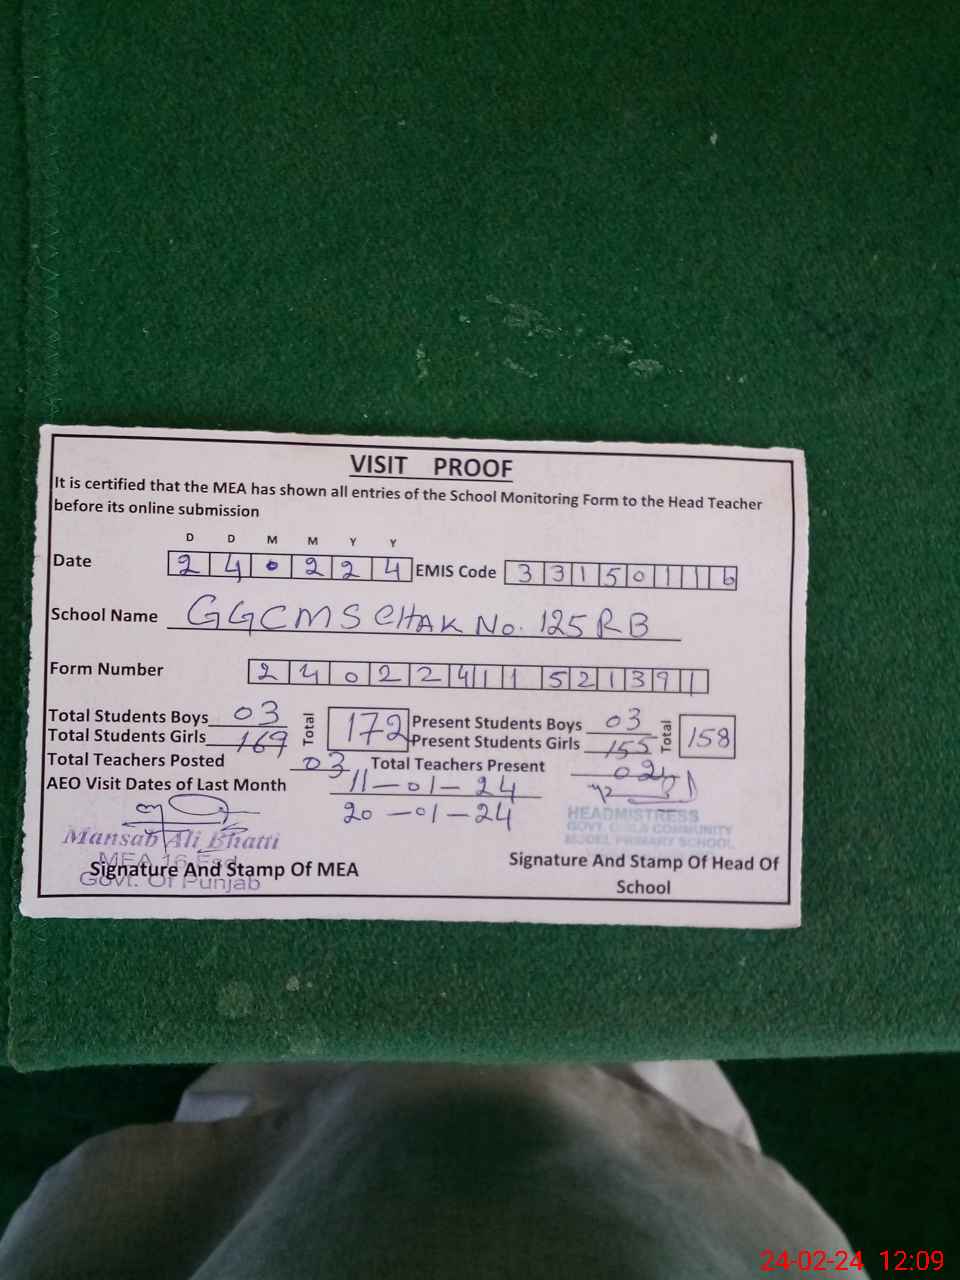 VISIT PROOF
It is certified that the MEA has shown all entries of the School Monitoring Form to the Head Teacher
before its online submission
D D M M Y Y
Date 2 4 0 2 2 4 EMIS Code 3 3 1 5 0 1 1 6
School Name GGCMS CHAK No. 125 RB
Form Number 2 4 0 2 2 4 1 1 5 2 1 3 9 1
Total Students Boys 03 Total 172 Present Students Boys 03 Total 158
Total Students Girls 169 Present Students Girls 155
Total Teachers Posted 03 Total Teachers Present 02
AEO Visit Dates of Last Month 11-01-24
20-01-24
Mansab Ali Bhatti
MEA 16 Fsd
Govt. Of Punjab
Signature And Stamp Of MEA
HEADMISTRESS
GOVT. GIRLS COMMUNITY
MODEL PRIMARY SCHOOL
Signature And Stamp Of Head Of
School
24-02-24 12:09